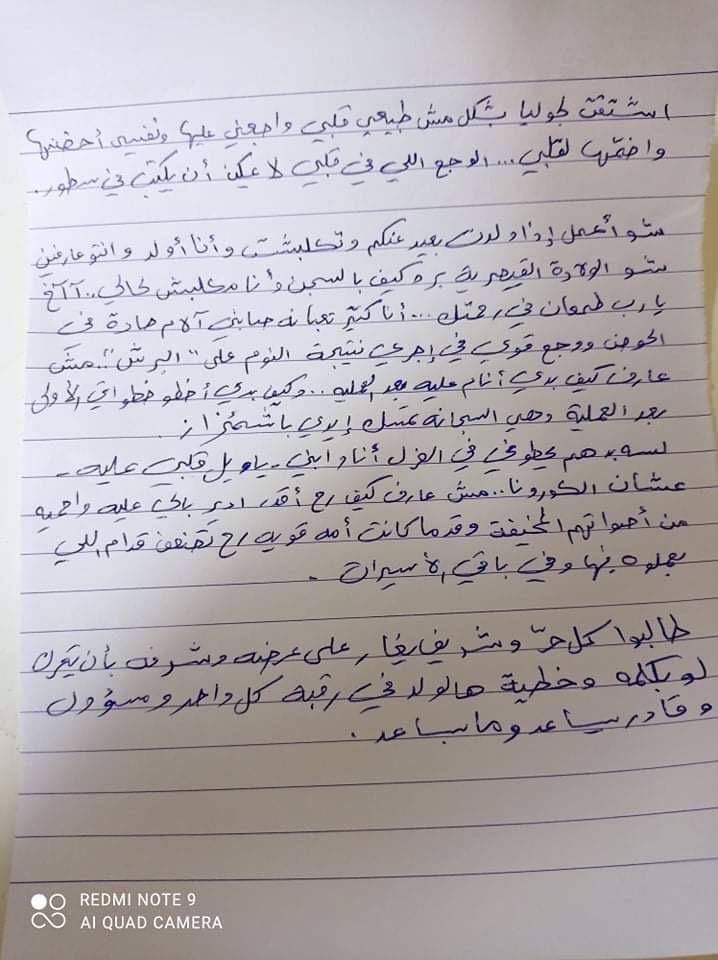 اشتقت لجوليا بشكل مش طبيعي قلبي واجعني عليها ونفسي أحضنها
واضمّها لقلبي... الوجع اللي في قلبي لا يمكن أن يكتب في سطور.
شو أعمل إذا ولدت بعيد عنكم وتكلبشت وأنا أولد وانتو عارفين
شو الولادة القيصرية بره كيف بالسجن وأنا مكلبش لحالي.. آآخ
يا رب طمعان في رحمتك... أنا كثير تعبانه صابني آلام حادة في
الحوض ووجع قوي في إجري نتيجة النوم على "البرش".. مش
عارف كيف بدي أنام عليه بعد العمليه... وكيف بدي أخطو خطواتي الأولى
بعد العملية وهي السجانه تمسك إيدي باشمئزاز.
لسه بدهم يحطوني في العزل أنا وابني - ياويل قلبي عليه -
عشان الكورونا.. مش عارف كيف رح أقدر ادير بالي عليه واحميه
من أصواتهم المخيفة وقد ما كانت أمه قويه رح تضعف قدام اللي
بعملوه فيها وفي باقي الأسيرات.
طالبوا كل حرّ وشريف يغار على عرضه وشرفه بأن يتحرك
لو بكلمه وخطية هالولد في رقبة كل واحد ومسؤول
وقادر يساعد وما بساعد.
REDMI NOTE 9
AI QUAD CAMERA